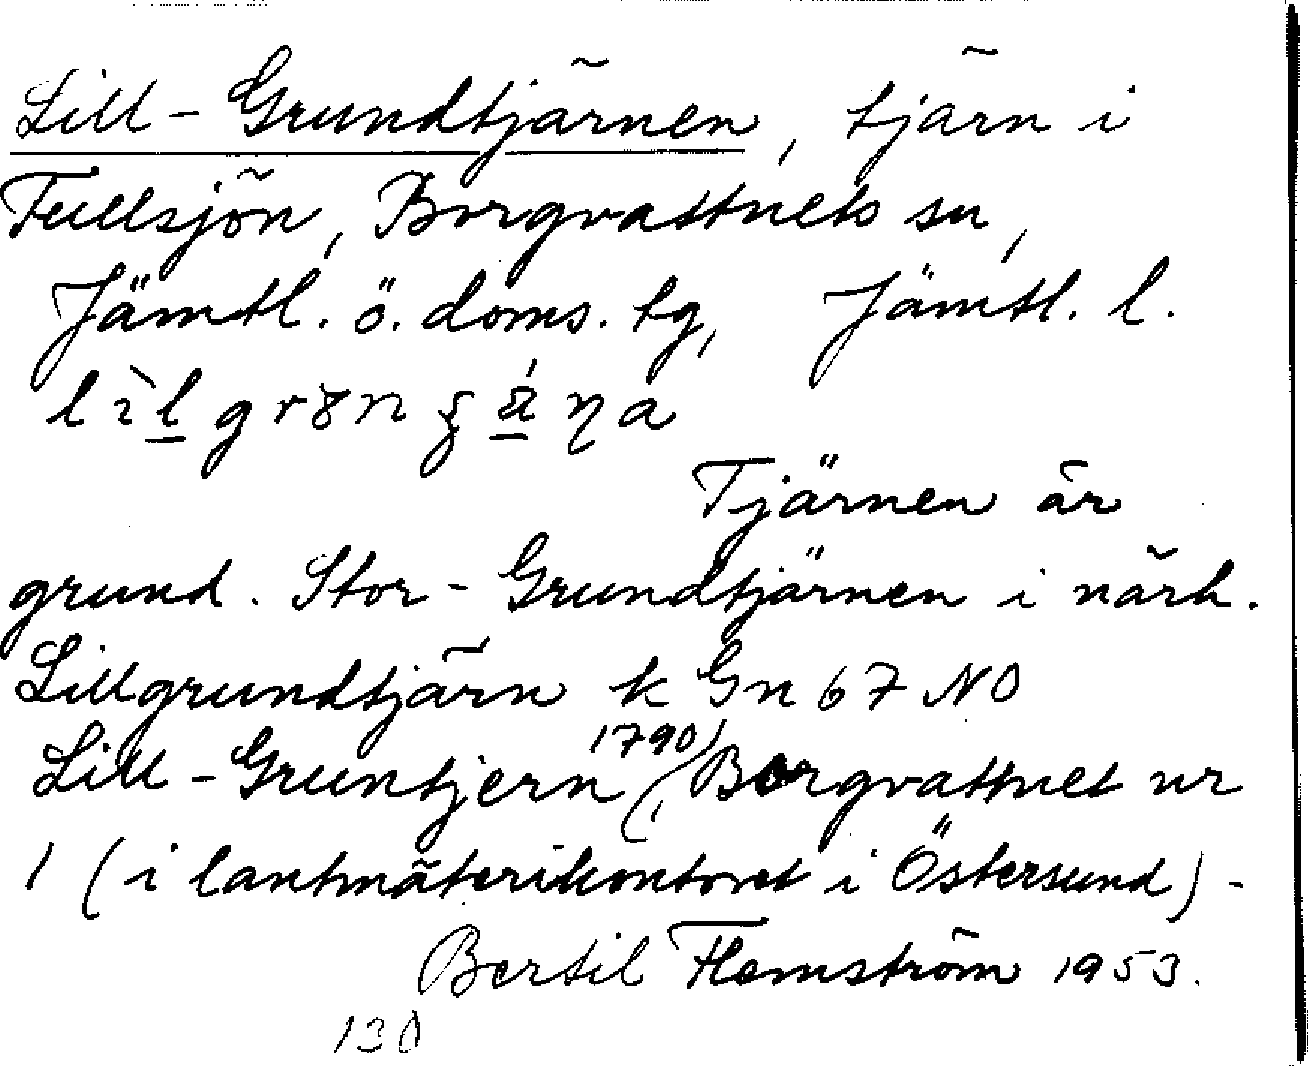 Lill-Grundtjärnen, tjärn i
Fullsjön, Borgvattnets sn,
Jämtl. ö. doms. tg, Jämtl. l.
Tjärnen är
grund. Stor-Grundtjärnen i närh.
Lillgrundtjärn k Gn 67 NO
Lill-Gruntjern (1790), Borgvattnet nr
1 (i lantmäterikontoret i Östersund) -
Bertil Flemström 1953.
130